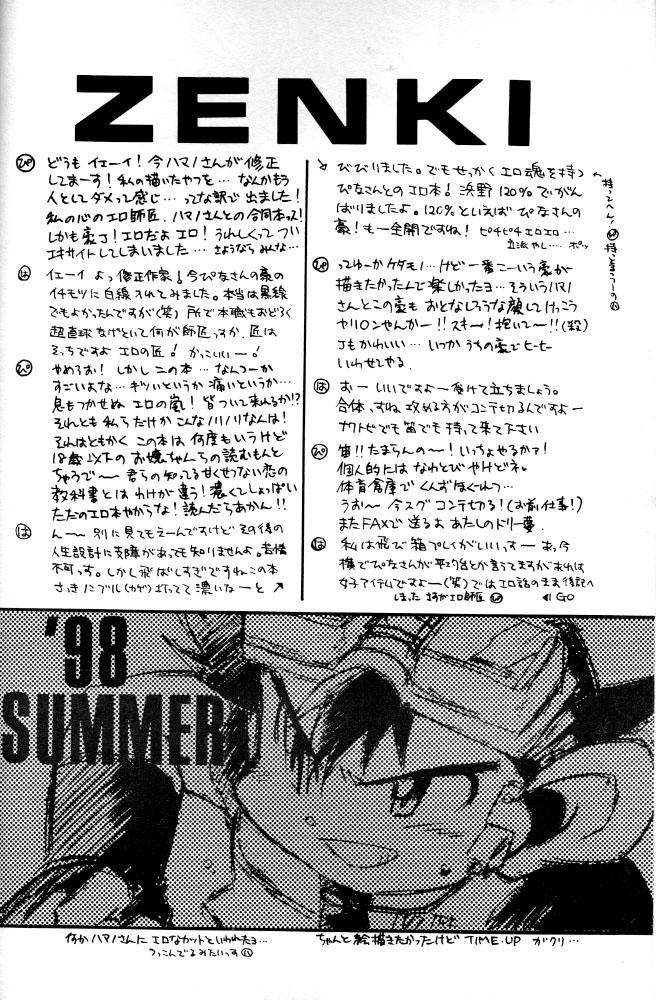 ZENKI
ぴ どうも イェーイ!今ハマノさんが修正
してまーす!私の描いたやつを… なんかもう
人としてダメって感じ… ってな訳で出ました!
私の心のエロ師匠、ハマノさんとの合同本っス!
しかも豪っ!エロだよ エロ!うれしくって つい
エキサイトしてしまいました… さようなら みんな…
は イェーイ よっ修正作家!今ぴなさんの豪の
イチモツに白線入れてみました。本当は黒線
でもよかったんですが(笑) 所で本職もおどろく
超直球なげといて何が師匠っすか。匠は
そっちですよ エロの匠! かっこいいー!
ぴ やめろお! しかし この本 … なんつーか
すごいよな… キツいというか 痛いというか…
息もつかせぬ エロの嵐!皆ついて来れるか!?
それとも私らだけか こんなノリノリなんは!
それはともかく この本は 何度もいうけど
18歳以下の お嬢ちゃんらの読むもんと
ちゃうで〜 君らの知ってる甘くせつない恋の
教科書とは わけが違う!濃くてしょっぱい
ただのエロ本やからな!読んだらあかん!!
は ん〜 別に見てもえーんですけど その後の
人生設計に支障があっても知りませんよ。苦情
不可っす。しかし飛ばしすぎですねこの本
さっきノーブル(カゲ)打ってて 濃いなーと ↗
↘ びびりました。でもせっかくエロ魂を持つ
ぴなさんとのエロ本!浜野120%でがん
ばりましたよ。120%といえばぴなさんの
豪!も一全開ですね! ピチピチエロエロ…
立派やし…. ポッ
持ってへん!
ぴ ってゆーかケダモノ…けど一番こーいう豪が
描きたかったんで楽しかったヨ…そういうハマノ
さんとこの豪も おとなしそうな顔してけっこう
ヤリロンやんかー!!スキー!抱いてー!!(殺)
Jもかわいい… いつか うちの豪でヒーヒー
いわせてやる.
は おー いいですよー 受けて立ちましょう。
合体っすね 攻める方がコンテ切るんですよー
ナワトビでも笛でも持って来て下さい
ぴ 笛!!たまらんの〜!いっちょやるかァ!
個人的には なわとび やけどネ。
体育倉庫で くんずほぐれつ…
うお〜 今スグ コンテ切る!(お前仕事!)
またFAXで送るよ あたしのドリー夢.
は 私は飛び箱プレイがいいっすー あっ、今
横でぴなさんが平均台とか言ってますが あれは
女子アイテムですよー(笑) では エロ話のまま後記へ
しまった さすがエロ師匠 ぴ ◀! GO
'98
SUMMER
何かハマノさんに エロなカットと いわれたヨ…
つっこんでるみたいっす は
ちゃんと絵描きたかったけど TIME・UP ガクリ…